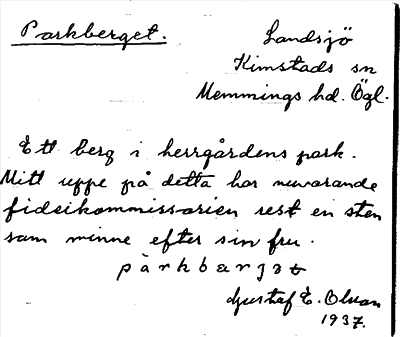 Parkberget.
Landsjö
Kimstads sn
Memmings hd. Ögl.
Ett berg i herrgårdens park.
Mitt uppe på detta har nuvarande
fideikommissarien rest en sten
som minne efter sin fru.
parkbärjet
Gustaf E. Olson
1937.